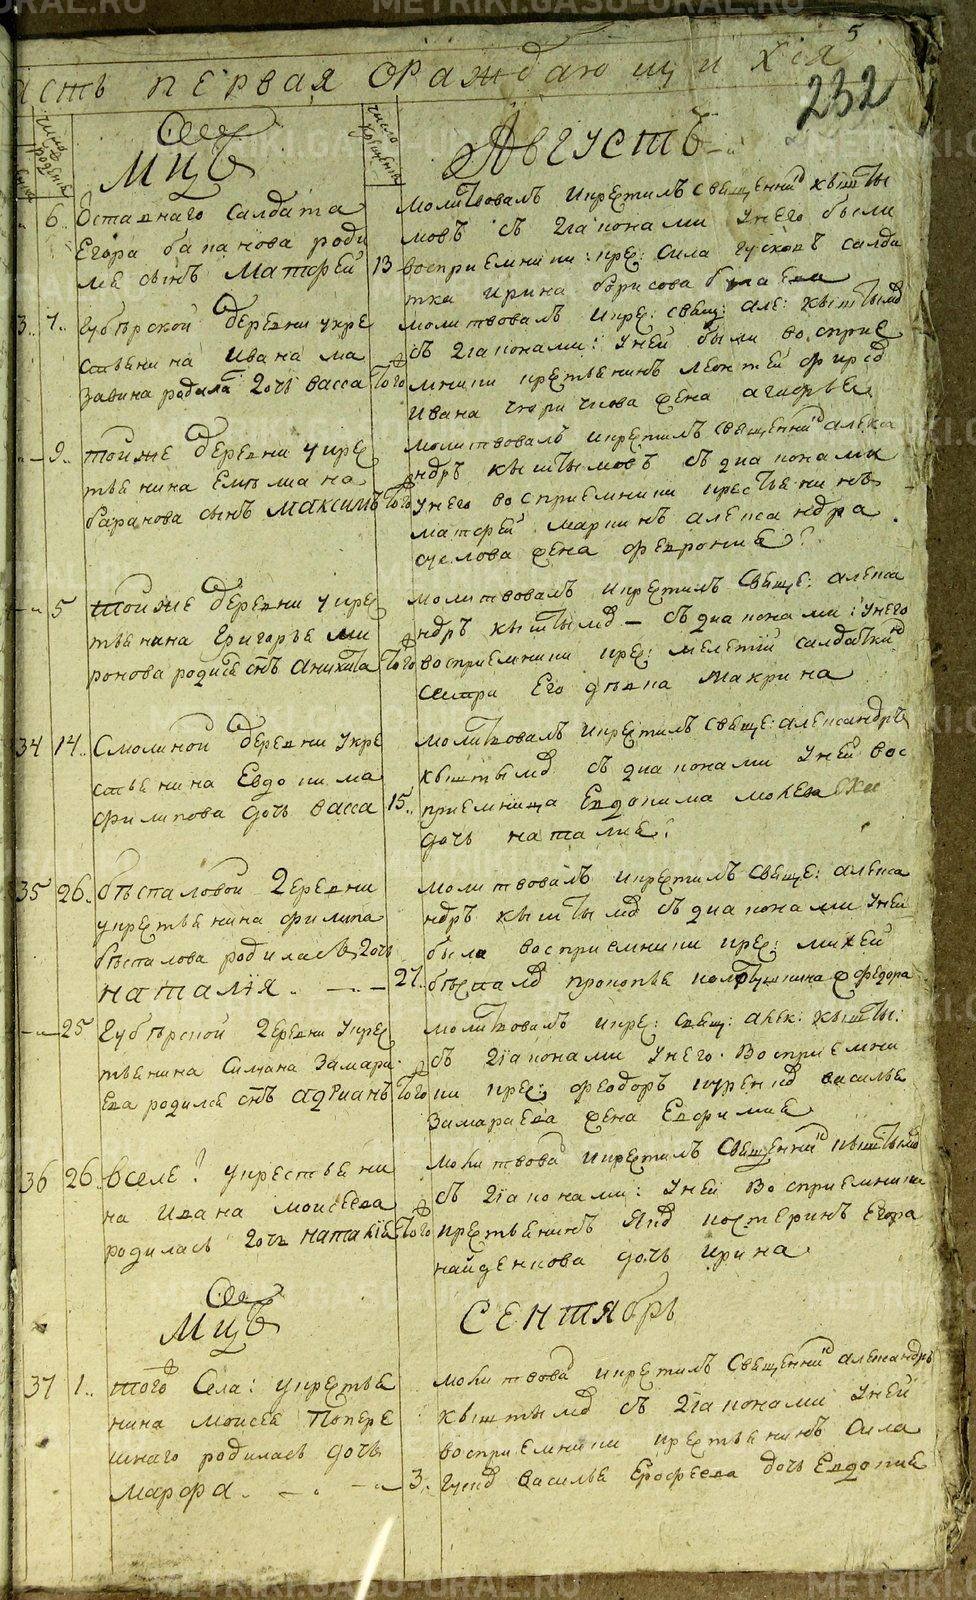 METRIKI.GASU-URAL.RU
5
асть первая ораждающи хся
232
число рождения
Мцъ
число крещения
Августъ
6
оставнаго салдата
Егора роди
лсе сынъ Матфей
13
молитвовалъ икрестилъ священник кышты
мовъ съ диаконами унего были
восприемники: кре: Сила гусковъ салда
тка ирина борисова
3
7
губѣрской деревни укре
стьенина ивана ма
заѣина родила дочь васса
того
молитвовалъ икре: свящ: але: кыштым
съ диаконами: уней были восприе
мники крестьенинъ леонтей
ивана жена агафье
9
тойже деревни укрес
тьенина Емельяна
баранова сынъ максимъ
того
молитвовалъ икрестилъ священник алекса
ндръ кыштымовъ съ диаконами
унего восприемники крестьенинъ
матфей маркинъ александра
суслова жена феврония
5
тойже деревни укрес
тьенина Григорье ми
ронова родисе снъ аникита
того
молитвовалъ икрестилъ свяще: алекса
ндръ кыштым съ диаконами: унего
восприемники кре: мелетий салдатки
сестри Его девка Макрина
34
14
Смолиной деревни укре
стьенина Евдокима
филипова дочь васса
15
молитвовалъ икрестилъ свяще: александръ
кыштым съ диаконами уней вос
приемница Евдокима
дочь наталие
35
26
бѣспаловой деревни
укрестьенина филипа
бѣспалова родиласе дочь
наталия
27
молитвовалъ икрестилъ свяще: алекса
ндръ кыштым съ диаконами уней
была восприемники кре: михей
бѣспал прокопье федора
25
губѣрской деревни укрес
тьенина Симона Замара
Ева родилсе снъ адрианъ
того
молитвовалъ икре: свящ: алек: кышты:
съ диаконами унего восприемни
ки крес: феодоръ василье
Замараева жена Евфимие
36
26
вселе укрестьени
на ивана моисеева
родилась дочь наталие
того
молитвова икрестилъ священник кыштым
съ диаконами: уней восприемники
крестьенинъ Як костеринъ Егора
найденкова дочь ирина
Мцъ
Сентябрь
37
1
того села: укрестье
нина моисее попере
шнаго родилась дочь
марфа
3
молитвова икрестилъ священник александръ
кыштым съ диаконами уней
восприемники крестьенинъ Сила
гуск василье Ерофеева дочь Евдокие
METRIKI.GASU-URAL.RU